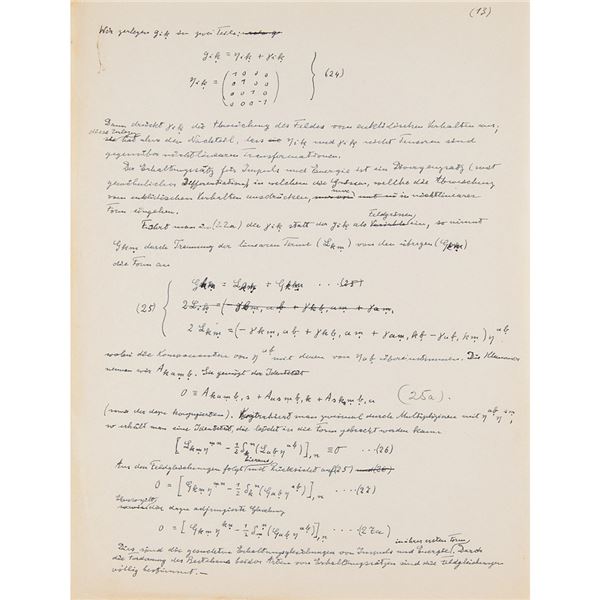 (13)
Wir zerlegen gik in zwei Teile:
gik = ηik + γik
ηik = (1 0 0 0
0 1 0 0
0 0 1 0
0 0 0 -1)
} (24)
Dann drückt γik die Abweichung des Feldes vom euklidischen Verhalten aus;
hat aber den Nachteil, dass ηik und γik nicht Tensoren sind
gegenüber nichtlinearen Transformationen.
Der Erhaltungssatz für Impuls und Energie ist ein Divergenzsatz (mit
gewöhnlicher Differentiation) in welchem die Grössen, welche die Abweichung
vom euklidischen Verhalten ausdrücken, nur in nichtlinearer
Form eingehen.
Führt man in (22a) die γik statt der gik als Feldgrössen ein, so nimmt
Gkm durch Trennung der linearen Terme (Lkm) von den übrigen
die Form an
Gkm = Lkm + Gkm ... (25)
(25) {
2 Lkm = (-γkm,ab + γkb,am + γam,kb - γab,km) η^ab
wobei die Komponenten von η^ab mit denen von ηab übereinstimmen. Die Klammer
nennen wir Akamb. Sie genügt der Identität
0 = Akamb,s + Aasmb,k + Askmb,a (25a).
(und der dazu konjugierten). man zweimal durch Multiplizieren mit
so erhält man eine Identität, die leicht in die Form gebracht werden kann:
[Lkm η^mn - ½ δk^n (Lab η^ab)],n ≡ 0 ... (26)
Aus den Feldgleichungen folgt hieraus (mit Rücksicht auf (25))
0 = [Gkm η^mn - ½ δk^n (Gab η^ab)],n ... (27)
dazu adjungierte Gleichung
0 = [Gkm η^kn - ½ δm^n (Gab η^ab)],n ... (27a)
in ihrer ersten Form
Dies sind die gesuchten Erhaltungsgleichungen von Impuls und Energie. Durch
die Forderung des Bestehens beider Arten von Erhaltungssätzen sind die Feldgleichungen
völlig bestimmt. —